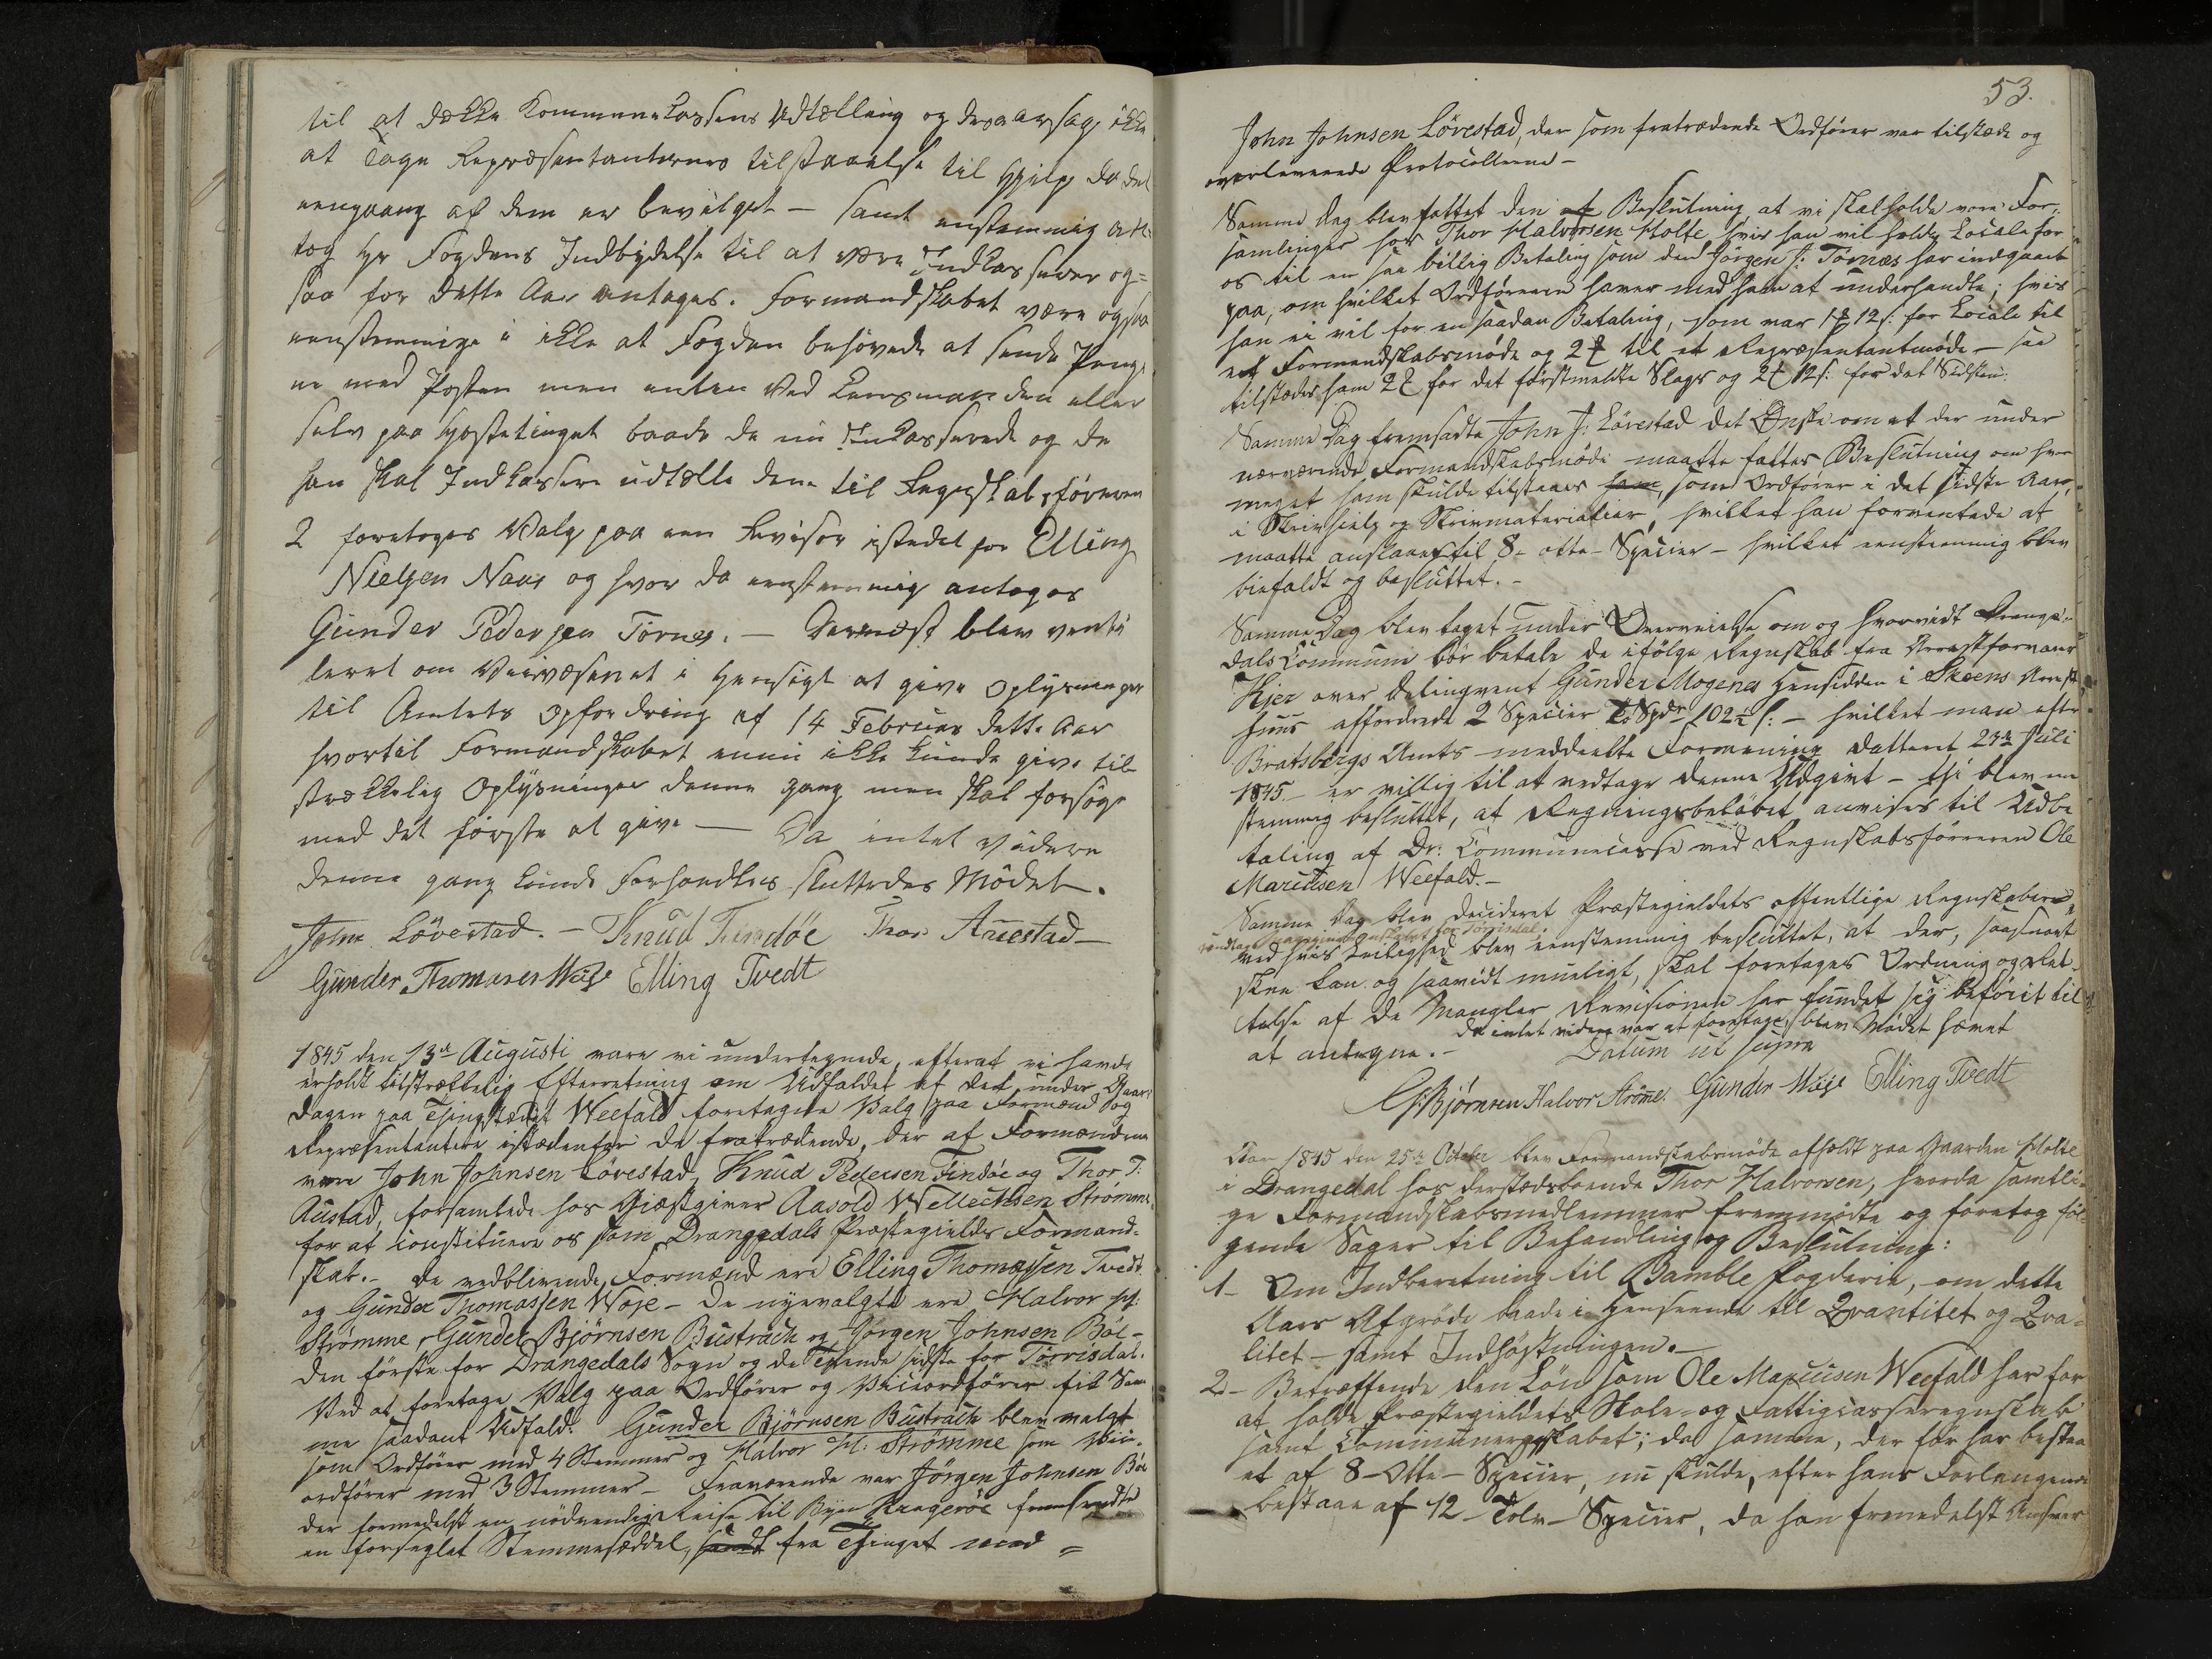 til at dække Kommunekassens Udtælling og deraarsag ikke
at tage Repræsentanternes tilstaaelse til Hjelp da det
eengaang af dem er bevilget – samt enstemmig
tog Hr Fogdens Indbydelse til at være Indkasserer og=
saa for dette Aar antages. Formandskabet være ogsaa
eenstemmige i ikke at Fogden behøvede at sende Penge
ne med Posten men enten ved Lensmanden eller
selv paa Høstetinget baade de nu Inkasserede og de
han skal Indkassere udtælle dem til Regnskabsføreren
2 foretoges Valg paa een Revisor istedet for Elling
Nielsen Naas og hvor da eenstemmig antoges
Gunder Pedersen Tørnes. – Dernæst blev venti
leret om Veivæsenet i Hensigt at give Oplysninger
til Amtets Opfordring af 14 Februar dette Aar
hvortil Formandskabet ennu ikke kunde give til
strækkelig Oplysninger denne gang men skal forsøge
med det første at give – Da intet videre
denne gang kunde Forhandles sluttedes Mødet.
John Lövestad. – Knud Findöe Thor Auestad –
Gunder Thomasen Woje Elling Tvedt
1845 den 13de Augusti vare vi undertegnede, efterat vi havde
erholdt tilstrækkelig Efterretning om Udfaldet af det, under Gaars
dagen paa Thingstedet Weefald foretagne Valg paa Formænd og
Repræsentantere istædenfor de fratrædende, der af Formændene
vare John Johnsen Lövestad, Knud Pedersen Findöe og Thor T:
Austad, forsamlede hos Giæstgiver Aasold Wellechsen Strömme,
for at constituere os som Drangedals Præstegields Formand-
skab. – De vedblivende Formænd ere Elling Thomassen Tvedt
og Gunder Thomassen Woje – De nyevalgte ere Halvor H:
Strömme, Gunder Björnsen Bustrack og Jörgen Johnsen Böe –
den første for Drangedals Sogn og de Tvende sidste for Törrisdal.
Ved at foretage Valg paa Ordfører og Viceordfører fik Sam
me saadant Udfald: Gunder Björnsen Bustrack blev valgt
som Ordfører med 4 Stemmer og Halvor H: Strömme som Vice-
ordfører med 3 Stemmer – Fraværende var Jörgen Johnsen Böe
der formedelst en nödvendig Reise til Byen Kragerøe fremsendte
en forseglet Stemmesæddel, fra Thinget med =
53.
John Johnsen Lövestad, der som fratrædende Ordfører var tilstæde og
overleverede Protocollerne –
Samme Dag blev fattet den Beslutning, at vi skal holde vore For-
samlinger hos Thor Halvorsen Holte, hvis han vil holde Locale for
os til en saa billig Betaling som den Jörgen J: Tornæs har indgaaet
paa, om hvilket Ordføreren haver med ham at underhandle; hvis
han ei vil for en saadan Betaling, som var 1 12 s: for Locale til
et Formandskabsmøde og 2 til et Repræsentantmøde – saa
tilstædes ham 2 for det førstmeldte Slags og 2 12 s: for det Sidste.
Samme Dag fremsatte John J: Lövestad det Ønske om at der under
nærværende Formandskabsmøde maatte fattes Beslutning om hvor
meget ham skulde tilstaaes, som Ordfører i det sidste Aar,
i Skrivhielp og Skrivmaterialier, hvilket han formentede at
maatte anslaaes til 8 – otte – Specier – hvilket eenstemmig blev
bifaldt og besluttet. –
Samme Dag blev taget under Overveielse om og hvorvidt Drange-
dals Commune bör betale de ifølge Regnskab fra Arrestforvarer
Kjer over Delinqvent Gunder Mogenes Hensidden i Skeens Arrest
huus affordrede 2 Specier To Spdr 102½ s: – hvilket man efter
Bratsbergs Amts meddeelte Formening datteret 23de Juli
1845 – er villig til at vedtage denne Udgivt – thi blev een
stemmig besluttet, at Regningsbeløbet anvises til Udbe
taling af Dr: Communecasse ved Regnskabsföreren Ole
Marcusen Weefald. –
Samme Dag blev decideret Præstegieldets offentlige Regnskaber
undtagen for Törrisdal
ved hvis Leilighed blev eenstemmig besluttet, at der, saasnart
skee kan og saavidt mueligt, skal foretages Ordning og Ret-
telse af de Mangler Revisionen har fundet sig beføiet til
at antegne. – da intet videre var at foretage, blev Mødet hævet
Datum ut supra
G: Björnsen Halvor Ströme. Gunder Woje Elling Tvedt
Aar 1845 den 25de October blev Formandskabsmøde afholdt paa Gaarden Holte
i Drangedal hos derstedsboende Thor Halvorsen, hvorda samtli-
ge Formandskabsmedlemmer fremmødte og foretog føl-
gende Sager til Behandling og Beslutning:
1 – Om Indberetning til Bamble Fogderie, om dette
Aars Afgrøde baade i Henseende til Qvantitet og Qva-
litet – samt Indhøstningen. –
2 – Betræffende den Løn som Ole Marcusen Weefald har for
at holde Præstegieldets Skole- og Fattigcasseregnskab
samt Communeregnskabet; da samme, der før har bestaa
et af 8 – Otte – Specier, nu skulde, efter hans Forlangende
bestaae af 12 – Tolv – Specier, da han formedelst Ansvar